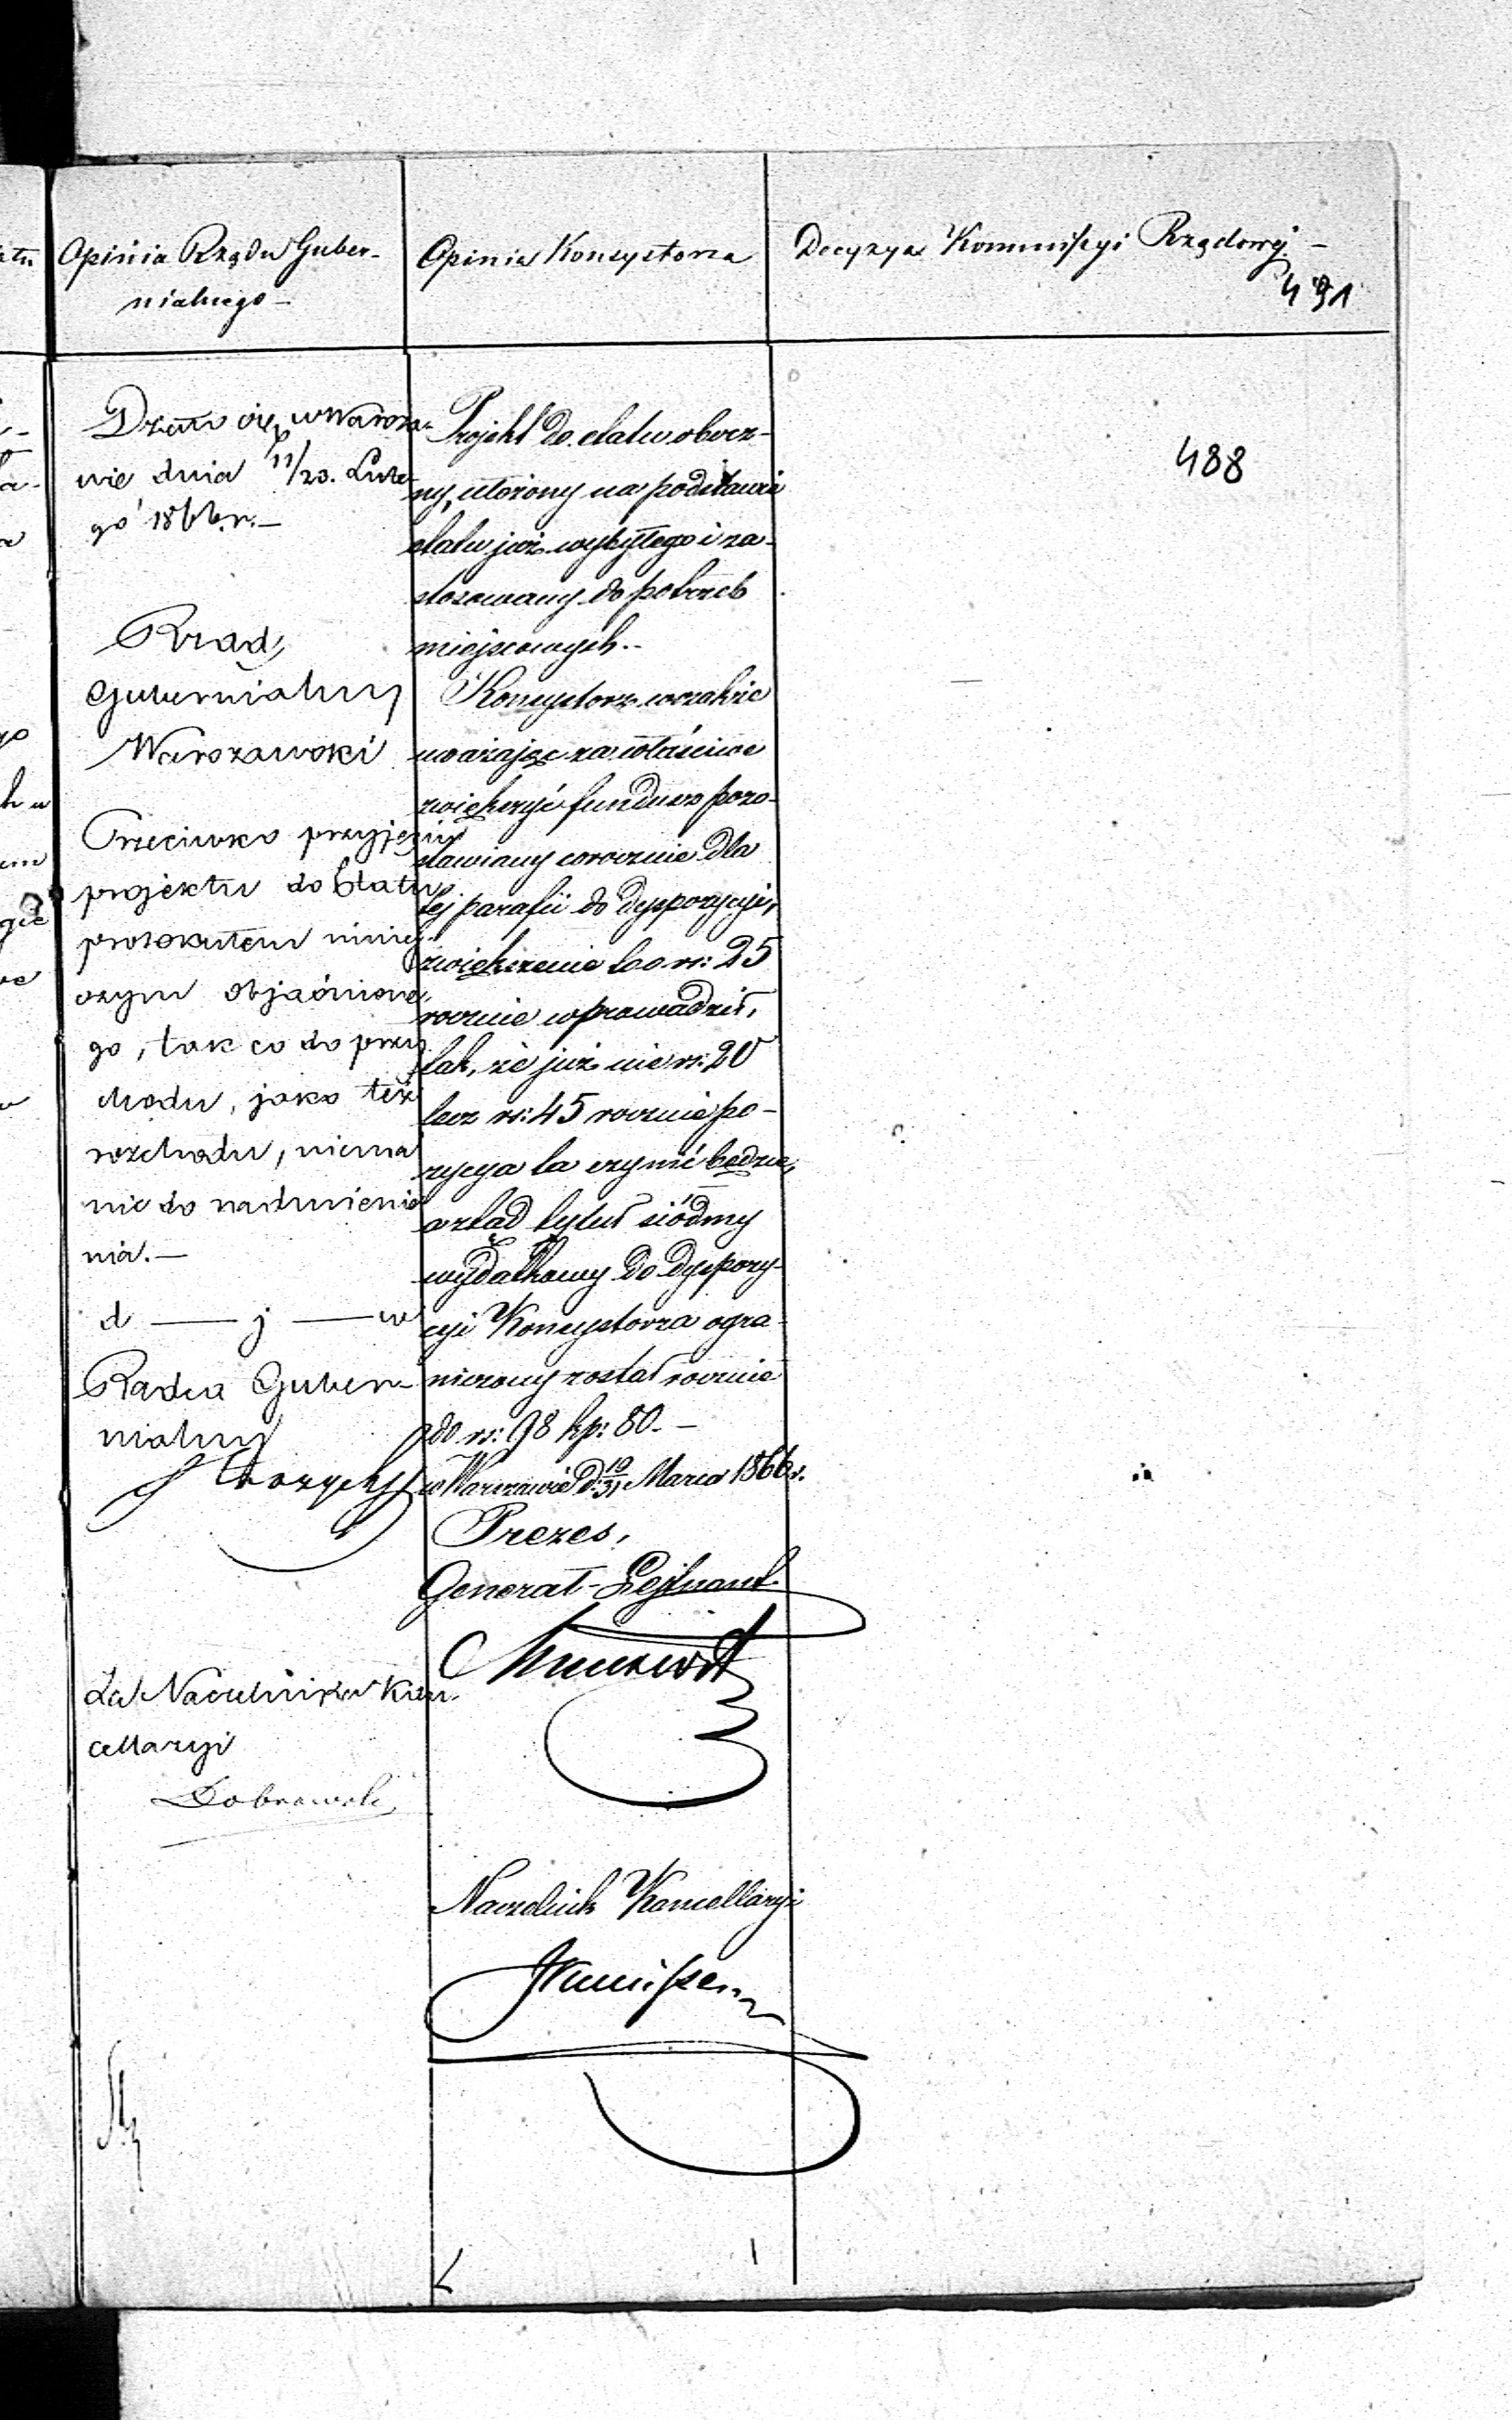 Opinia Rządu Guber-
nialnego -
Opinia Konsystorza
Decyzya Kommissyi Rządowej -
491
488
Działo się w Warsza-
wie dnia 11/23. Lute-
go 1866 r. -
Rząd
Gubernialny
Warszawski
Przeciwko przyjęciu
projektu do Etatu
protokułem niniej-
szym objaśnione-
go, tak co do przy-
chodu, jako też
rozchodu, niema
nic do nadmienie-
nia. -
d — j — w
Radca Guber-
nialny
Za Naczelnika Kan-
cellaryi
Dobrowolski
Projekt do etatu obecz-
ny, ułożony na podstawie
etatu już wybyłego i za-
stosowany do potrzeb
miejscowych..
Konsystorz wszakże
uważając za właściwe
zwiększyć fundusz pozo-
stawiany corocznie dla
tej parafii do dyspozycyi,
zwiększenie to o rs: 25
rocznie wprowadził,
tak, że już nie rs: 20
lecz rs: 45 rocznie po-
zycya ta czynić będzie,
a ztąd tytuł siódmy
wydatkowy do dyspozy-
cyi Konsystorza ogra-
niczony został rocznie
do rs: 98 kp: 80. -
w Warszawie d. 19/31 Marca 1866 r.
Prezes,
Generał-Lejtnant
Naczelnik Kancellaryi